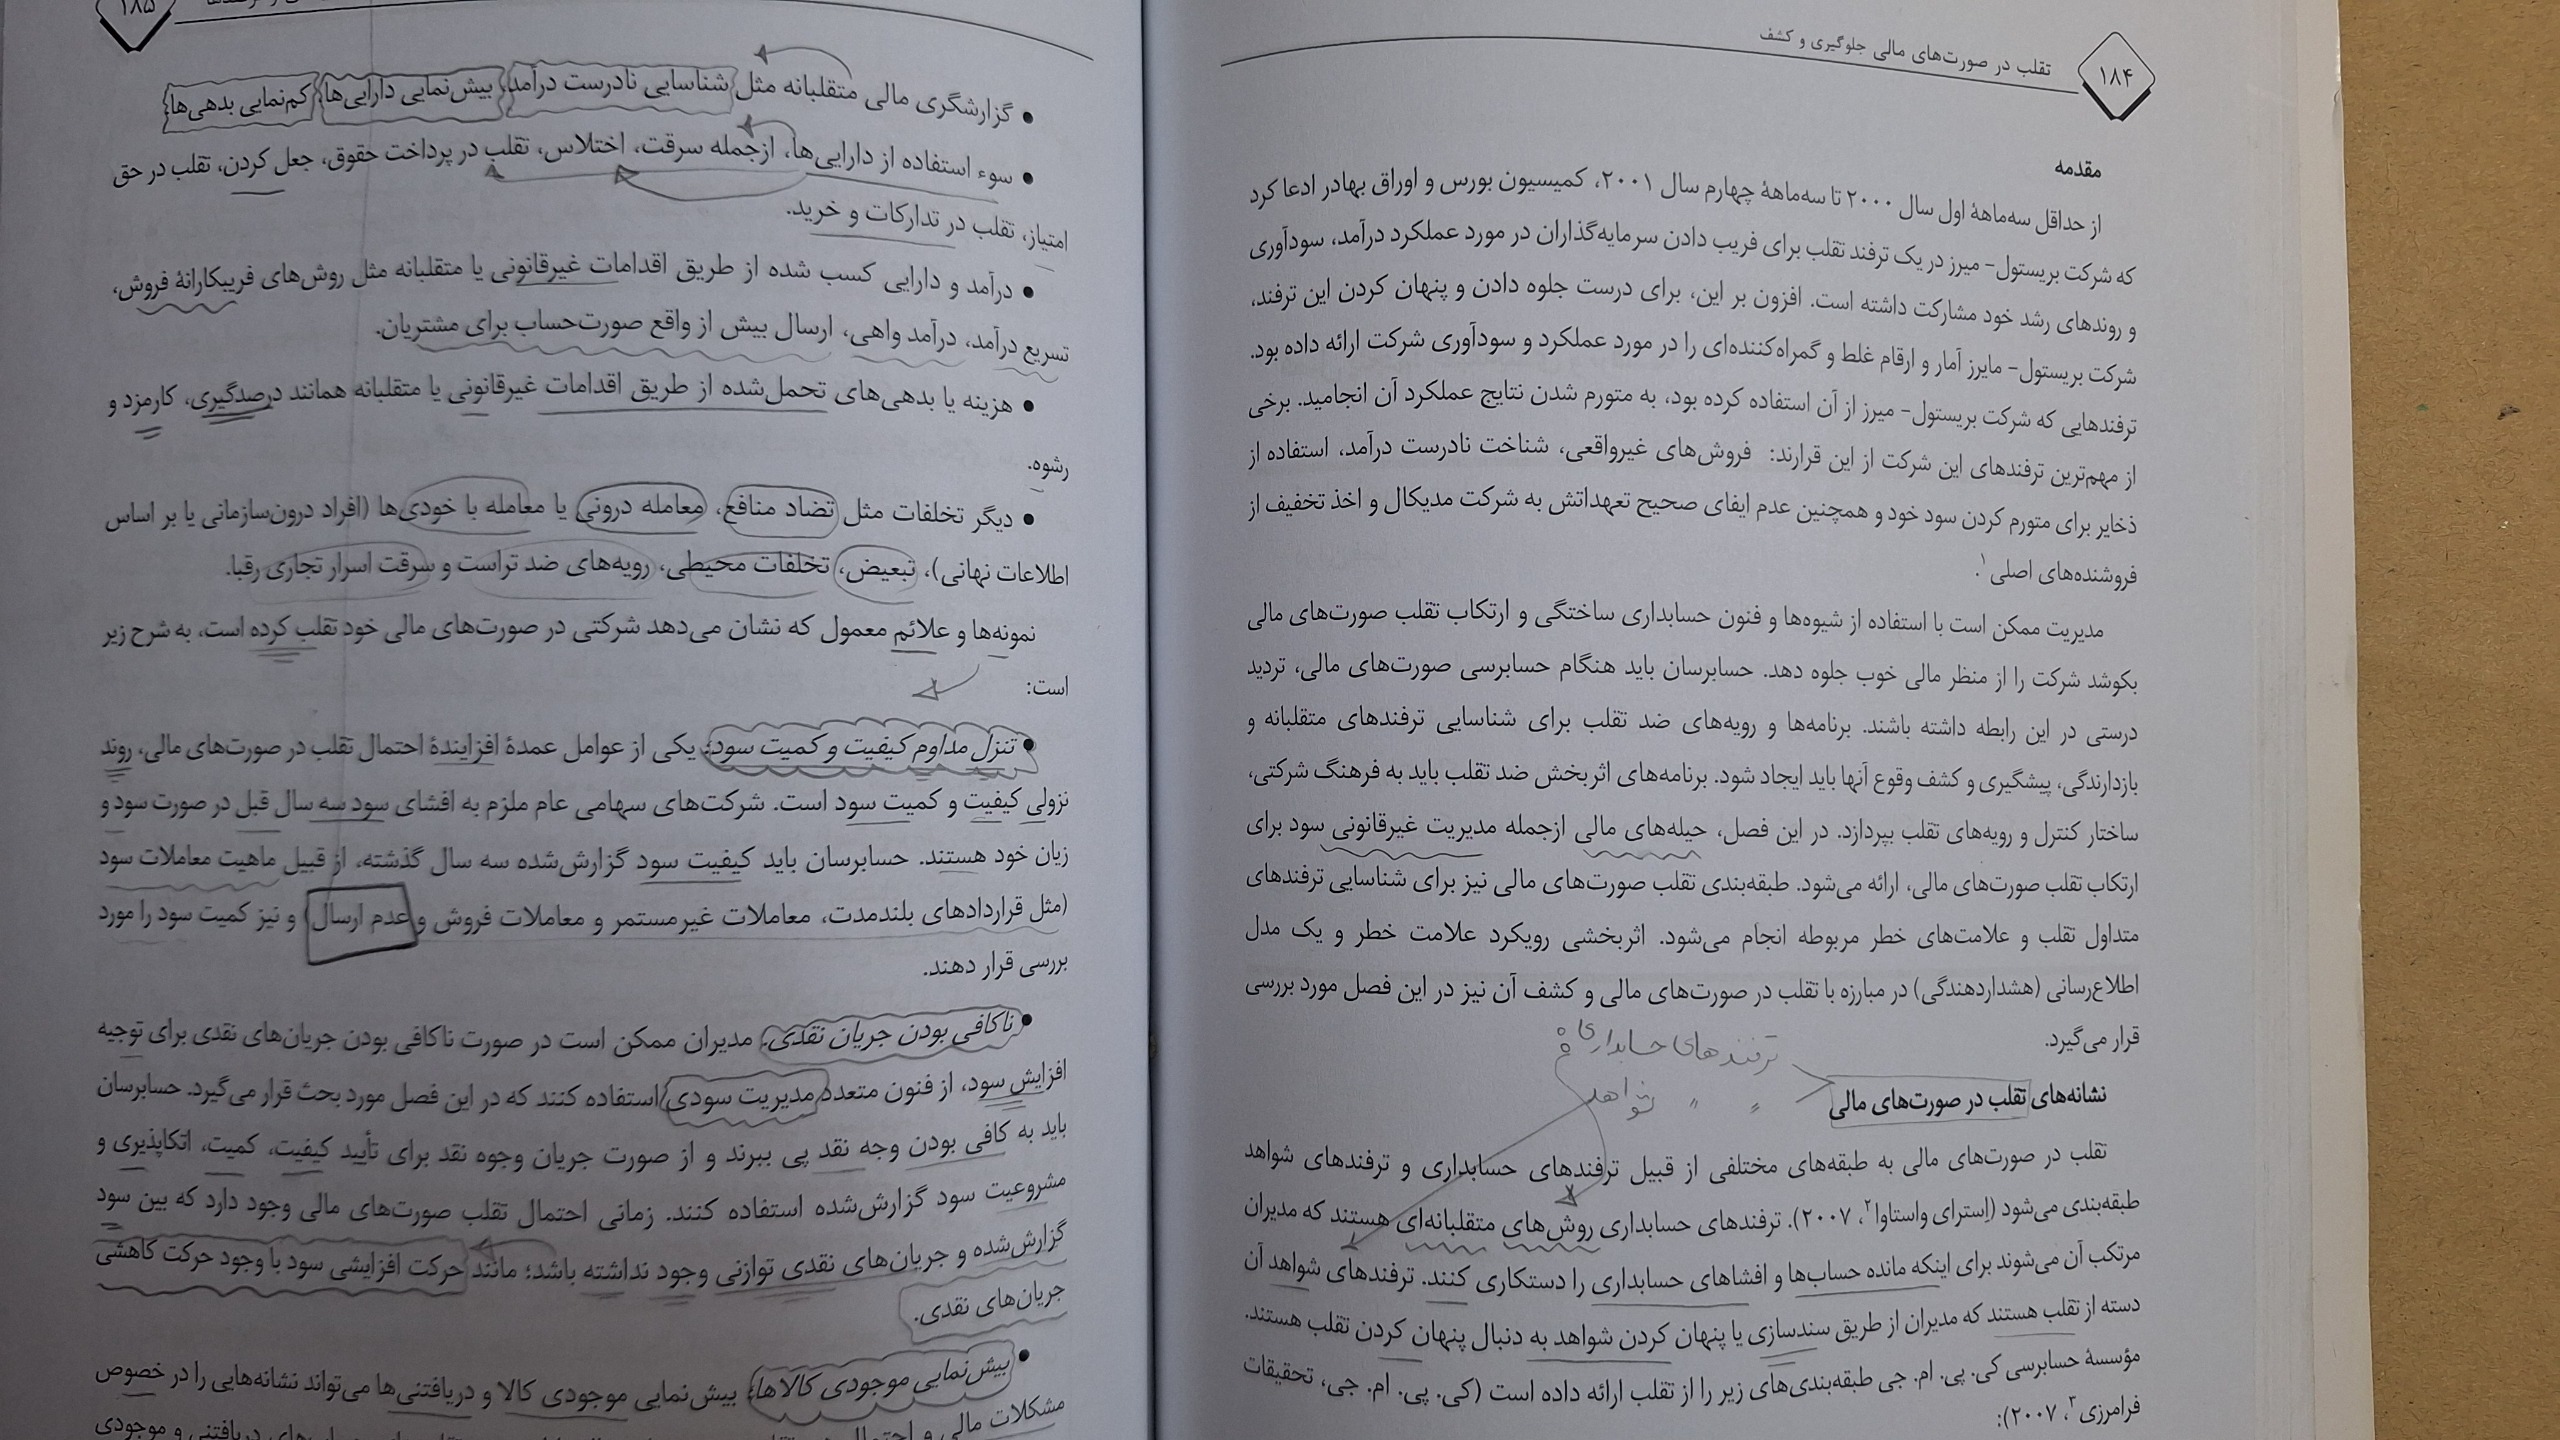 ۱۸۴
تقلب در صورت‌های مالی جلوگیری و کشف
مقدمه
از حداقل سه‌ماههٔ اول سال ۲۰۰۰ تا سه‌ماههٔ چهارم سال ۲۰۰۱، کمیسیون بورس و اوراق بهادر ادعا کرد
که شرکت بریستول- میرز در یک ترفند تقلب برای فریب دادن سرمایه‌گذاران در مورد عملکرد درآمد، سودآوری
و روندهای رشد خود مشارکت داشته است. افزون بر این، برای درست جلوه دادن و پنهان کردن این ترفند،
شرکت بریستول- مایرز آمار و ارقام غلط و گمراه‌کننده‌ای را در مورد عملکرد و سودآوری شرکت ارائه داده بود.
ترفندهایی که شرکت بریستول- میرز از آن استفاده کرده بود، به متورم شدن نتایج عملکرد آن انجامید. برخی
از مهم‌ترین ترفندهای این شرکت از این قرارند: فروش‌های غیرواقعی، شناخت نادرست درآمد، استفاده از
ذخایر برای متورم کردن سود خود و همچنین عدم ایفای صحیح تعهداتش به شرکت مدیکال و اخذ تخفیف از
فروشنده‌های اصلی۱.
مدیریت ممکن است با استفاده از شیوه‌ها و فنون حسابداری ساختگی و ارتکاب تقلب صورت‌های مالی
بکوشد شرکت را از منظر مالی خوب جلوه دهد. حسابرسان باید هنگام حسابرسی صورت‌های مالی، تردید
درستی در این رابطه داشته باشند. برنامه‌ها و رویه‌های ضد تقلب برای شناسایی ترفندهای متقلبانه و
بازدارندگی، پیشگیری و کشف وقوع آنها باید ایجاد شود. برنامه‌های اثربخش ضد تقلب باید به فرهنگ شرکتی،
ساختار کنترل و رویه‌های تقلب بپردازد. در این فصل، حیله‌های مالی ازجمله مدیریت غیرقانونی سود برای
ارتکاب تقلب صورت‌های مالی، ارائه می‌شود. طبقه‌بندی تقلب صورت‌های مالی نیز برای شناسایی ترفندهای
متداول تقلب و علامت‌های خطر مربوطه انجام می‌شود. اثربخشی رویکرد علامت خطر و یک مدل
اطلاع‌رسانی (هشداردهندگی) در مبارزه با تقلب در صورت‌های مالی و کشف آن نیز در این فصل مورد بررسی
قرار می‌گیرد.
ترفندهای حسابداری
نشانه‌های تقلب در صورت‌های مالی
〃 〃 شواهد
تقلب در صورت‌های مالی به طبقه‌های مختلفی از قبیل ترفندهای حسابداری و ترفندهای شواهد
طبقه‌بندی می‌شود (اِسترای واستاوا۲، ۲۰۰۷). ترفندهای حسابداری روش‌های متقلبانه‌ای هستند که مدیران
مرتکب آن می‌شوند برای اینکه مانده حساب‌ها و افشاهای حسابداری را دستکاری کنند. ترفندهای شواهد آن
دسته از تقلب هستند که مدیران از طریق سندسازی یا پنهان کردن شواهد به دنبال پنهان کردن تقلب هستند.
مؤسسهٔ حسابرسی کی. پی. ام. جی طبقه‌بندی‌های زیر را از تقلب ارائه داده است (کی. پی. ام. جی، تحقیقات
فرامرزی۳، ۲۰۰۷):
۱۸۵
• گزارشگری مالی متقلبانه مثل شناسایی نادرست درآمد، بیش‌نمایی دارایی‌ها، کم‌نمایی بدهی‌ها؛
• سوء استفاده از دارایی‌ها، ازجمله سرقت، اختلاس، تقلب در پرداخت حقوق، جعل کردن، تقلب در حق
امتیاز، تقلب در تدارکات و خرید.
• درآمد و دارایی کسب شده از طریق اقدامات غیرقانونی یا متقلبانه مثل روش‌های فریبکارانهٔ فروش،
تسریع درآمد، درآمد واهی، ارسال بیش از واقع صورت‌حساب برای مشتریان.
• هزینه یا بدهی‌های تحمل‌شده از طریق اقدامات غیرقانونی یا متقلبانه همانند درصدگیری، کارمزد و
رشوه.
• دیگر تخلفات مثل تضاد منافع، معامله درونی یا معامله با خودی‌ها (افراد درون‌سازمانی یا بر اساس
اطلاعات نهانی)، تبعیض، تخلفات محیطی، رویه‌های ضد تراست و سرقت اسرار تجاری رقبا.
نمونه‌ها و علائم معمول که نشان می‌دهد شرکتی در صورت‌های مالی خود تقلب کرده است، به شرح زیر
است:
• تنزل مداوم کیفیت و کمیت سود؛ یکی از عوامل عمدهٔ افزایندهٔ احتمال تقلب در صورت‌های مالی، روند
نزولی کیفیت و کمیت سود است. شرکت‌های سهامی عام ملزم به افشای سود سه سال قبل در صورت سود و
زیان خود هستند. حسابرسان باید کیفیت سود گزارش‌شده سه سال گذشته، از قبیل ماهیت معاملات سود
(مثل قراردادهای بلندمدت، معاملات غیرمستمر و معاملات فروش و عدم ارسال) و نیز کمیت سود را مورد
بررسی قرار دهند.
• ناکافی بودن جریان نقدی. مدیران ممکن است در صورت ناکافی بودن جریان‌های نقدی برای توجیه
افزایش سود، از فنون متعدد مدیریت سودی استفاده کنند که در این فصل مورد بحث قرار می‌گیرد. حسابرسان
باید به کافی بودن وجه نقد پی ببرند و از صورت جریان وجوه نقد برای تأیید کیفیت، کمیت، اتکاپذیری و
مشروعیت سود گزارش‌شده استفاده کنند. زمانی احتمال تقلب صورت‌های مالی وجود دارد که بین سود
گزارش‌شده و جریان‌های نقدی توازنی وجود نداشته باشد؛ مانند حرکت افزایشی سود با وجود حرکت کاهشی
جریان‌های نقدی.
• بیش‌نمایی موجودی کالاها؛ بیش‌نمایی موجودی کالا و دریافتنی‌ها می‌تواند نشانه‌هایی را در خصوص
مشکلات مالی و احتمال
دریافتنی و موجودی